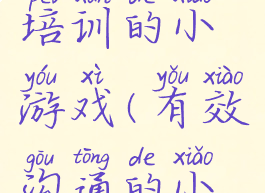 péi xùn de xiǎo
培训的小
yóu xì yǒu xiào
游戏(有效
gōu tōng de xiǎo
沟通的小